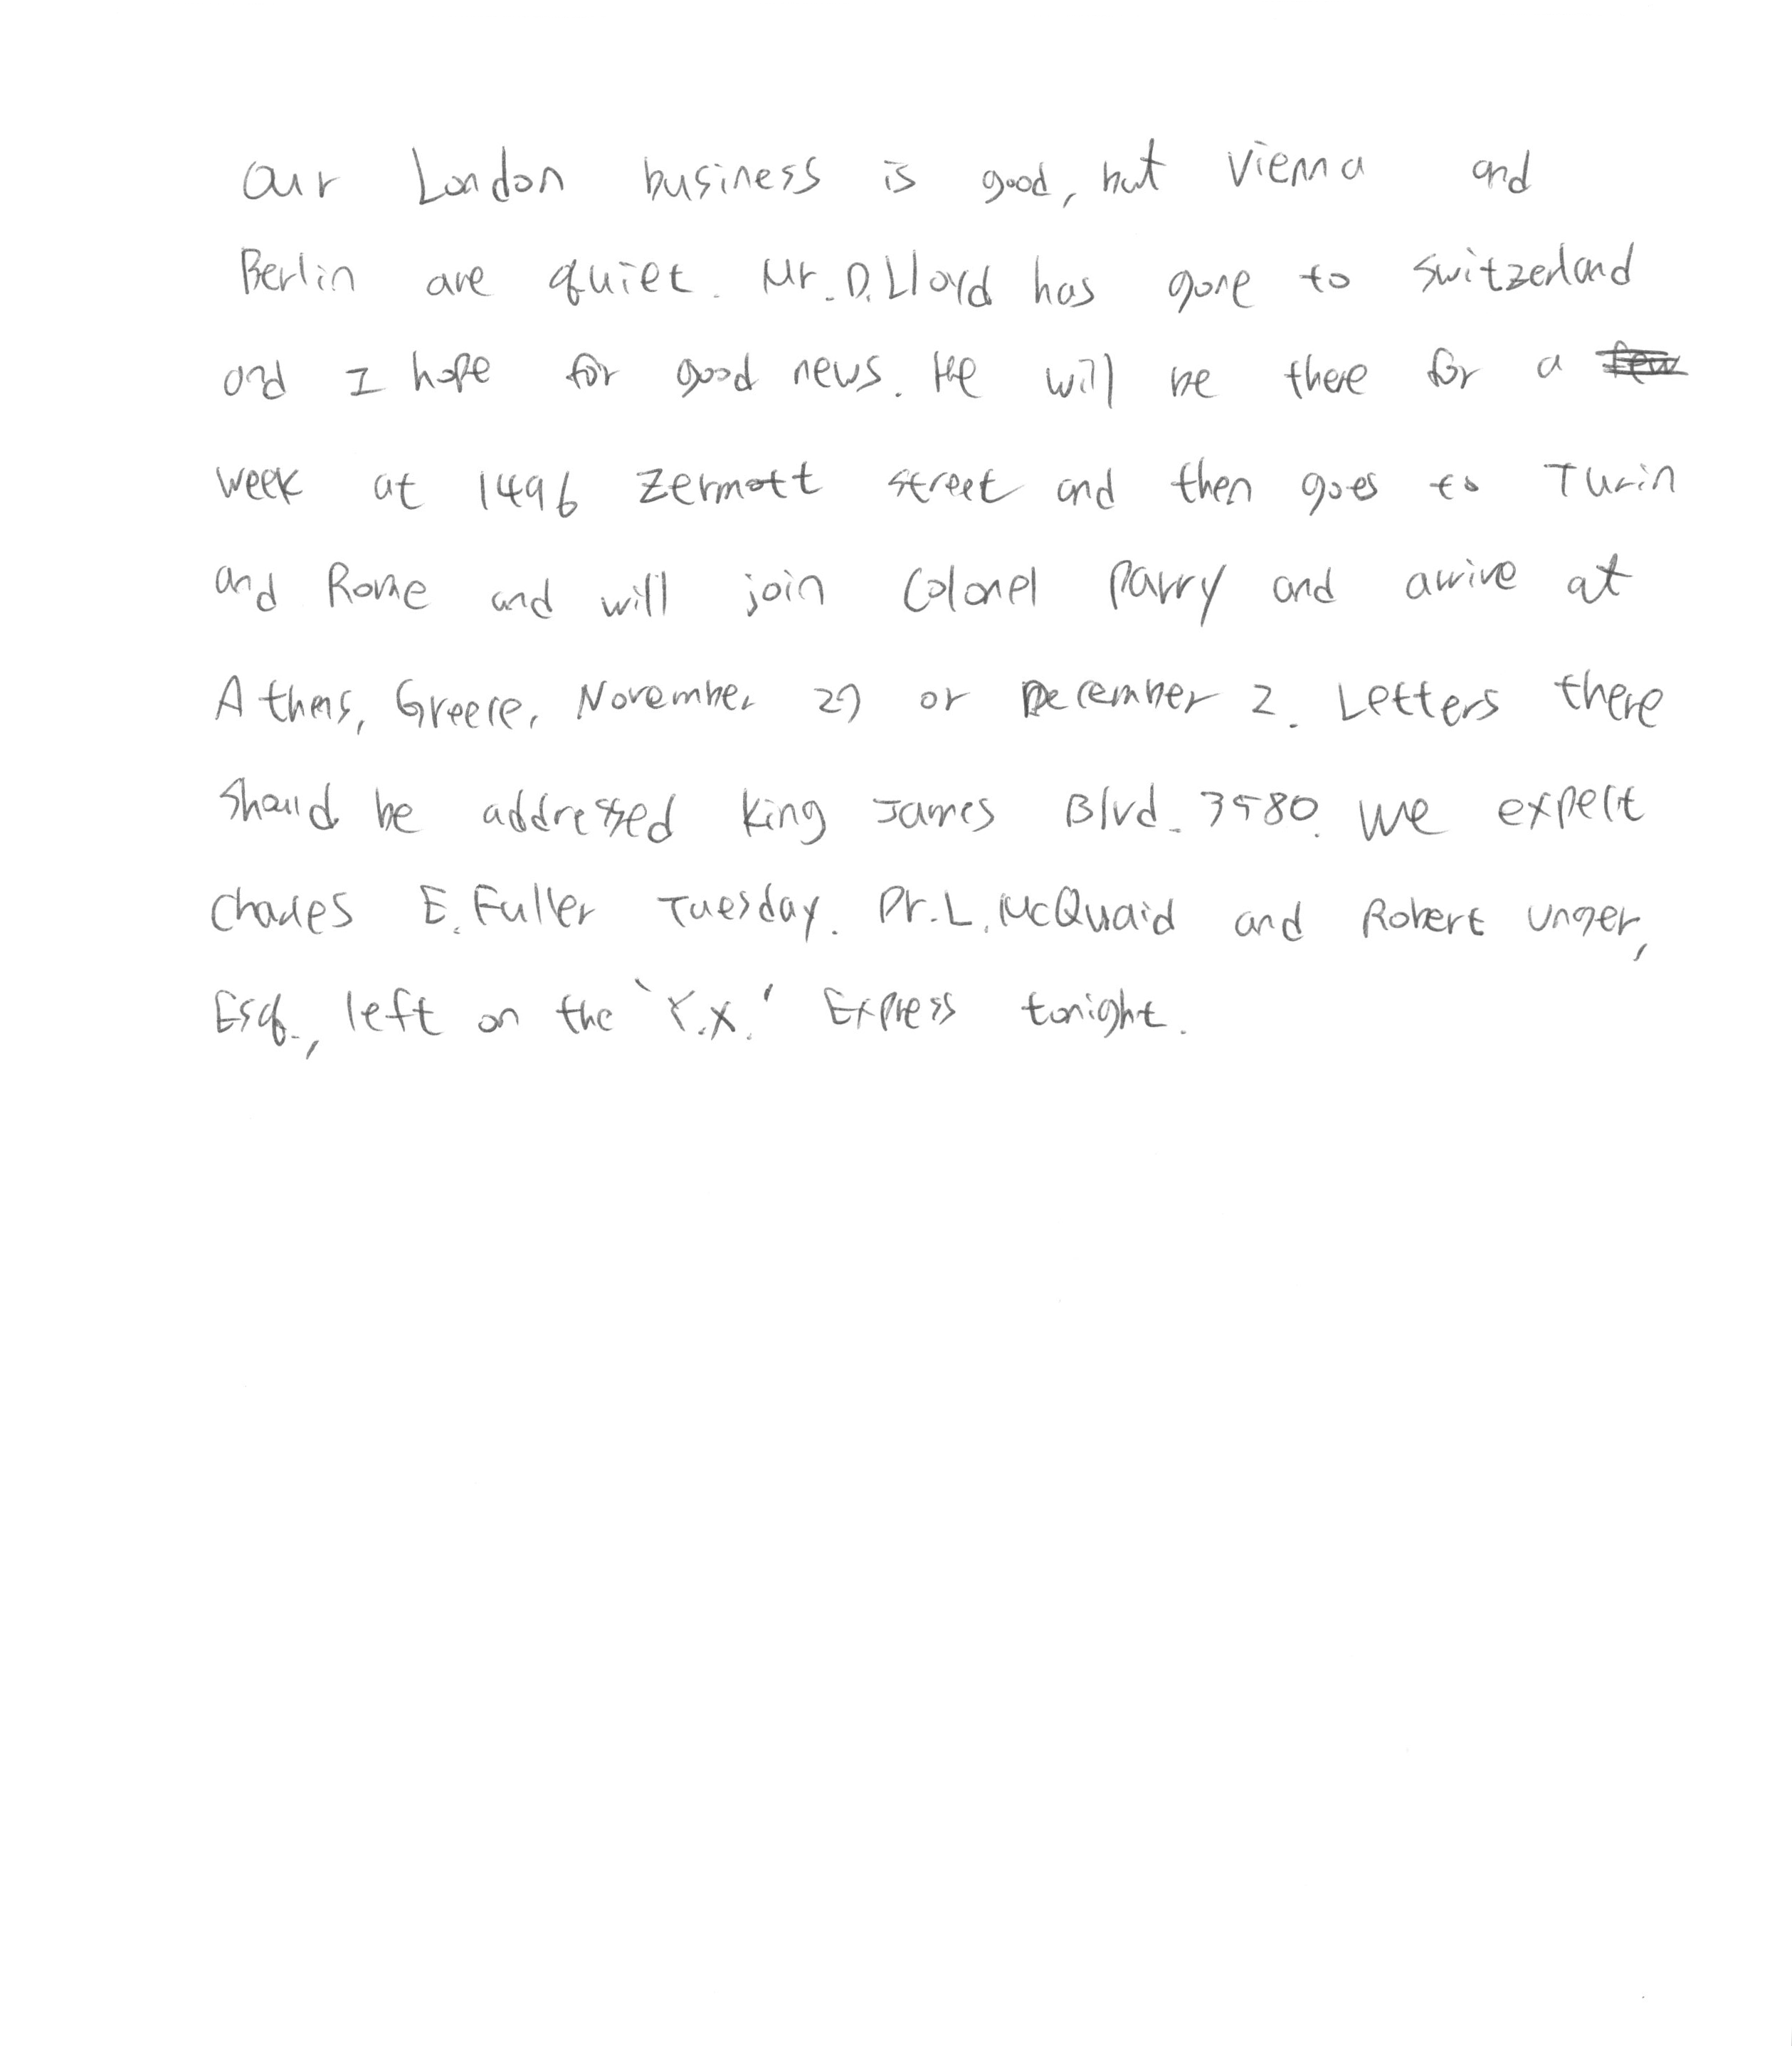 Our London business is good, but Vienna and
Berlin are quiet. Mr. D. Lloyd has gone to Switzerland
and I hope for good news. He will be there for a
week at 1496 Zermott street and then goes to Turin
and Rome and will join Colonel Parry and arrive at
Athens, Greece, November 29 or December 2. Letters there
should be addressed King James Blvd. 3580. We expect
Charles E. Fuller Tuesday. Dr. L. McQuaid and Robert Unger,
Esq., left on the 'Y.X.' Express tonight.